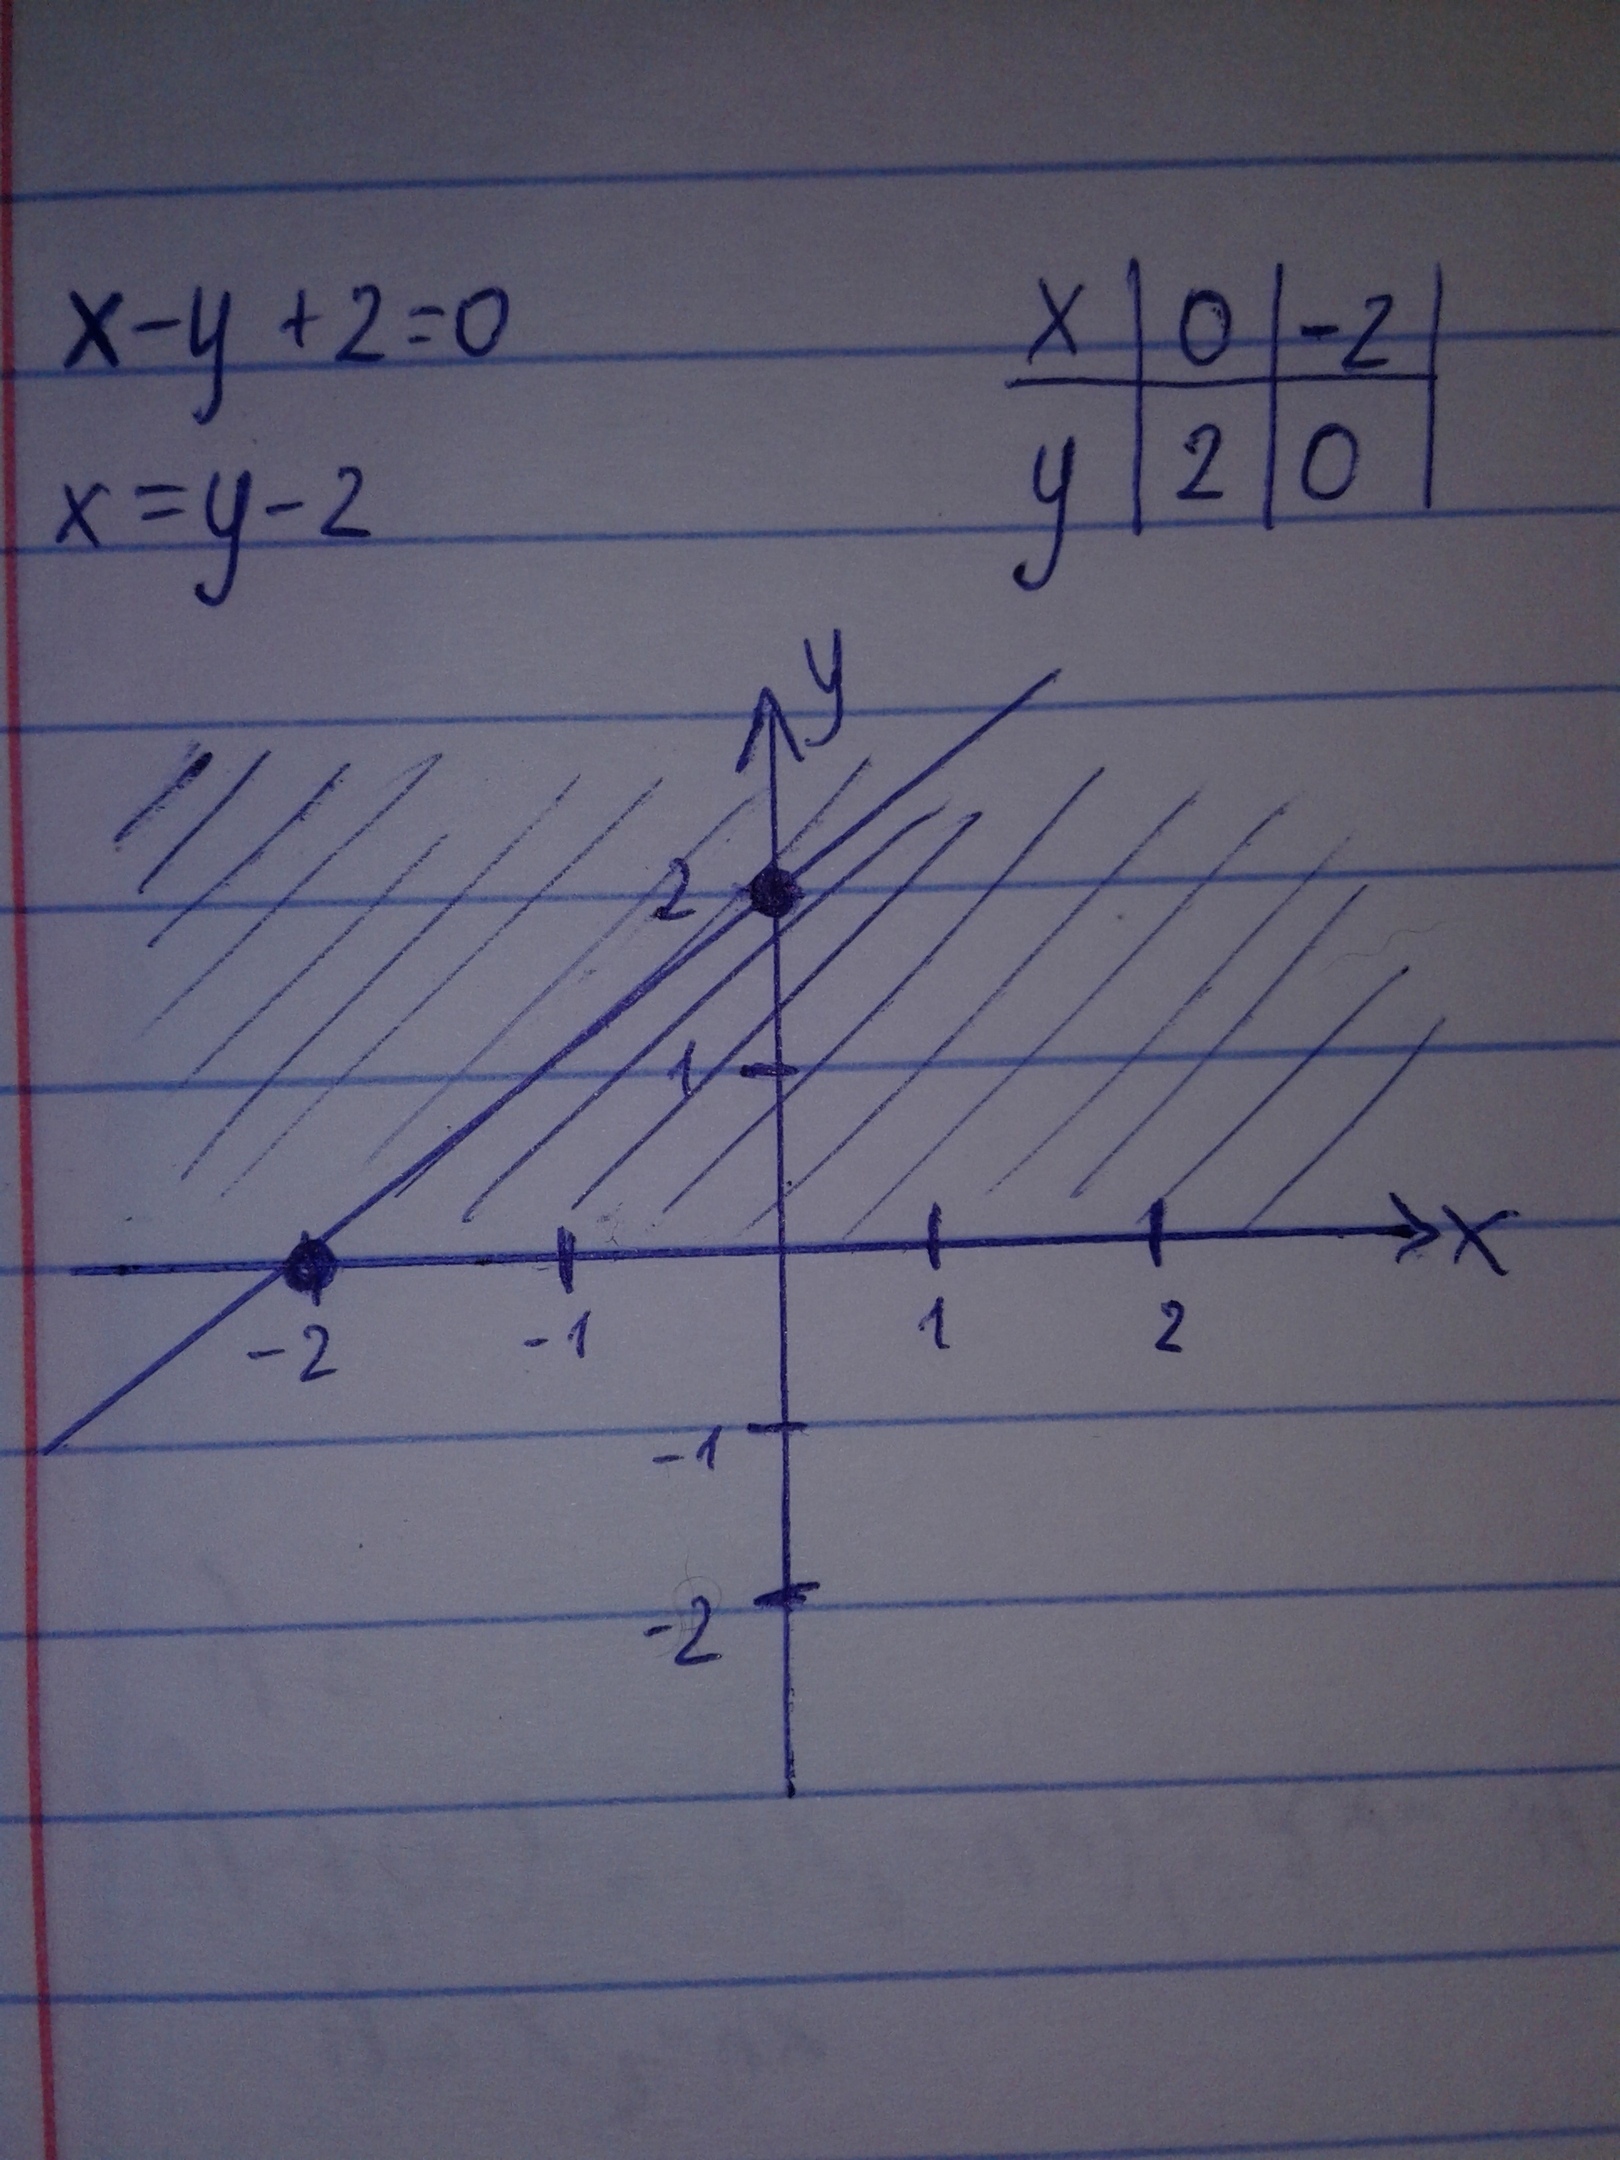 x-y+2=0
x=y-2
x 0 -2
y 2 0
y
2
1
-2 -1 1 2 x
-1
-2